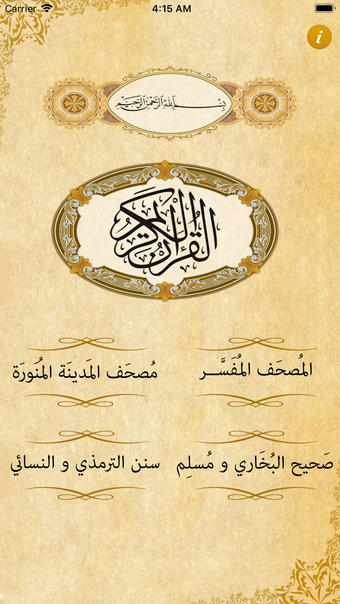 Carrier 4:15 AM
i
بسم الله الرحمن الرحيم
القرآن الكريم
المُصحَف المُفَسَّــر
مُصحَف المَدينَة المُنَورَة
صَحيح البُخَاري و مُسلِم
سنن الترمذي و النسائي